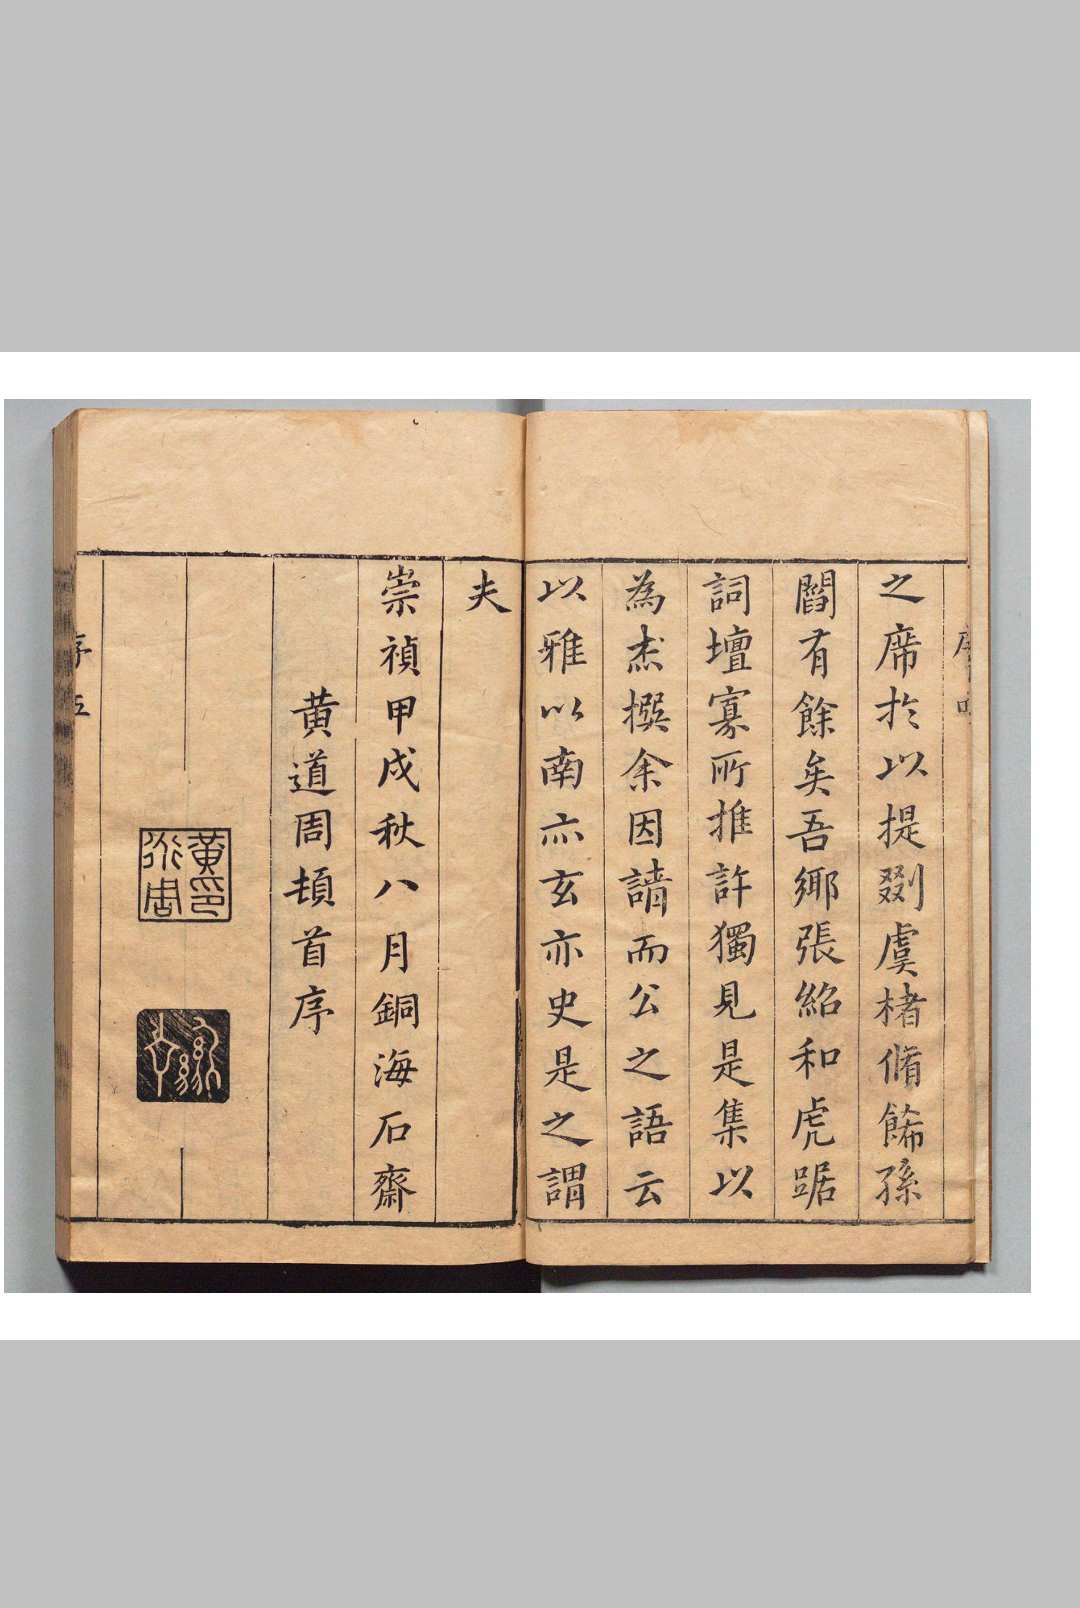 之席於以提剟虞楮脩餙孫
閻有餘矣吾鄉張紹和虎踞
詞壇寡所推許獨見是集以
為杰撰余因請而公之語云
以雅以南亦玄亦史是之謂
夫
崇禎甲戌秋八月銅海石齋
黃道周頓首序
序五